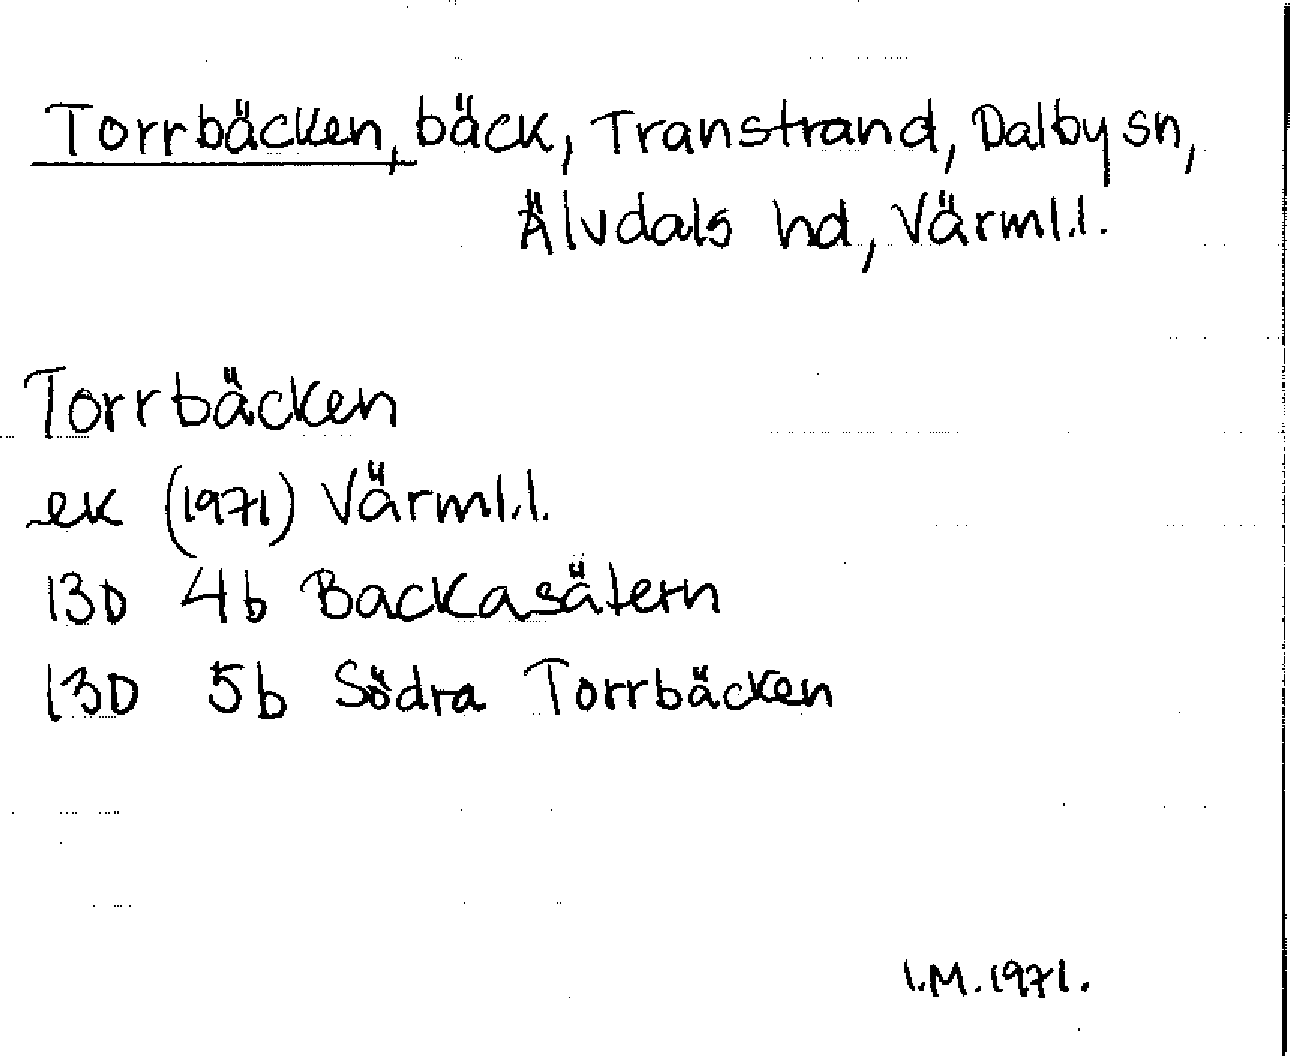 Torrbäcken, bäck, Transtrand, Dalby sn,
Älvdals hd, Värml.l.
Torrbäcken
ek (1971) Värml.l.
13D 4b Backasätern
13D 5b Södra Torrbäcken
I.M. 1971.